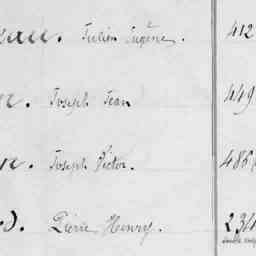 eau. Julien Eugène. 412
n. Joseph Jean 449
n. Joseph Victor. 486
d. Pierre Henry. 234